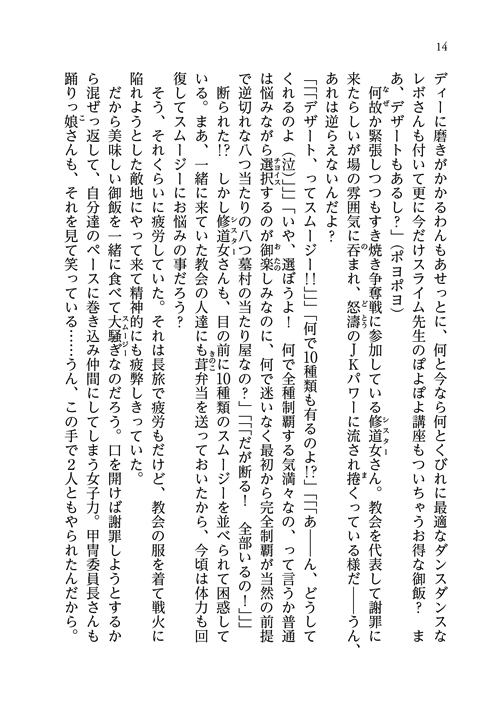 14
ディーに磨きがかかるわんもあせっとに、何と今なら何とくびれに最適なダンスダンスな
レボさんも付いて更に今だけスライム先生のぽよぽよ講座もついちゃうお得な御飯？　ま
あ、デザートもあるし？」（ポヨポヨ）
　何故か緊張しつつもすき焼き争奪戦に参加している修道女さん。教会を代表して謝罪に
来たらしいが場の雰囲気に呑まれ、怒濤のＪＫパワーに流され捲くっている様だ――うん、
あれは逆らえないんだよ？
「「「デザート、ってスムージー!!」」」「何で10種類も有るのよ!?」「「「あ――ん、どうして
くれるのよ（泣）」」」「いや、選ぼうよ！　何で全種制覇する気満々なの、って言うか普通
は悩みながら選択するのが御楽しみなのに、何で迷いなく最初から完全制覇が当然の前提
で逆切れな八つ当たりの八つ墓村の当たり屋なの？」「「「だが断る！　全部いるの！」」」
　断られた!?　しかし修道女さんも、目の前に10種類のスムージーを並べられて困惑して
いる。まあ、一緒に来ていた教会の人達にも茸弁当を送っておいたから、今頃は体力も回
復してスムージーにお悩みの事だろう？
　そう、それくらいに疲労していた。それは長旅で疲労もだけど、教会の服を着て戦火に
陥れようとした敵地にやって来て精神的にも疲弊しきっていた。
　だから美味しい御飯を一緒に食べて大騒ぎなのだろう。口を開けば謝罪しようとするか
ら混ぜっ返して、自分達のペースに巻き込み仲間にしてしまう女子力。甲冑委員長さんも
踊りっ娘さんも、それを見て笑っている……うん、この手で２人ともやられたんだから。